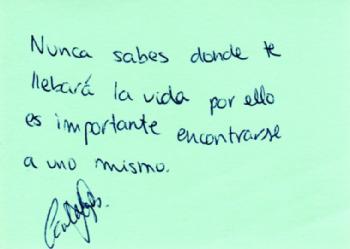 Nunca sabes donde te
llebará la vida por ello
es importante encontrarse
a uno mismo.